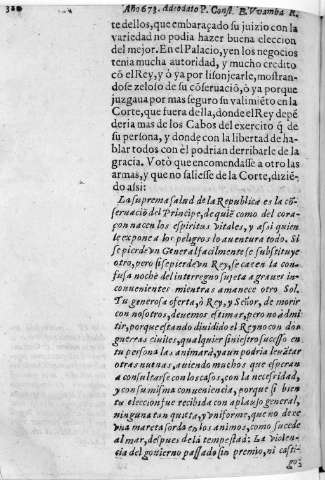 320 Año 673. Adeodato P. Const. E. Vvamba R.
te dellos, que embaraçado su juizio con la
variedad no podia hazer buena eleccion
del mejor. En el Palacio, y en los negocios
tenia mucha autoridad, y mucho credito
cō el Rey, y ò ya por lisonjearle, mostran-
dose zeloso de su cōseruaciō, ò ya porque
juzgaua por mas seguro su valimiēto en la
Corte, que fuera della, donde el Rey depē
deria mas de los Cabos del exercito q̄ de
su persona, y donde con la libertad de ha-
blar todos con él podrian derribarle de la
gracia. Votò que encomendasse a otro las
armas, y que no saliesse de la Corte, diziē-
do assi:
La suprema salud de la Republica es la cō-
seruaciō del Principe, de quiē como del cora-
çon nacen los espiritus vitales, y assi quien
le expone a los peligros lo auentura todo. Si
se pierde vn General facilmente se substituye
otro, pero si se pierde vn Rey, se cae en la con-
fusa noche del interregno sujeta a graues in-
conuenientes mientras amanece otro Sol.
Tu generosa oferta, ò Rey, y Señor, de morir
con nosotros, deuemos estimar, pero no admi-
tir, porque estando diuidido el Reyno con dos
guerras ciuiles, qualquier siniestro sucesso en
tu persona las animarà, y aun podria leuātar
otras nueuas, auiendo muchos que esperan
a consultarse con los casos, con la necessidad,
y con su misma conueniencia, porque si bien
tu eleccion fue recibida con aplauso general,
ninguna tan quieta, y vniforme, que no dexe
vna mareta sorda en los animos, como sucede
al mar, despues de la tempestad: La violen-
cia del gouierno passado sin premio, ni casti-
go;